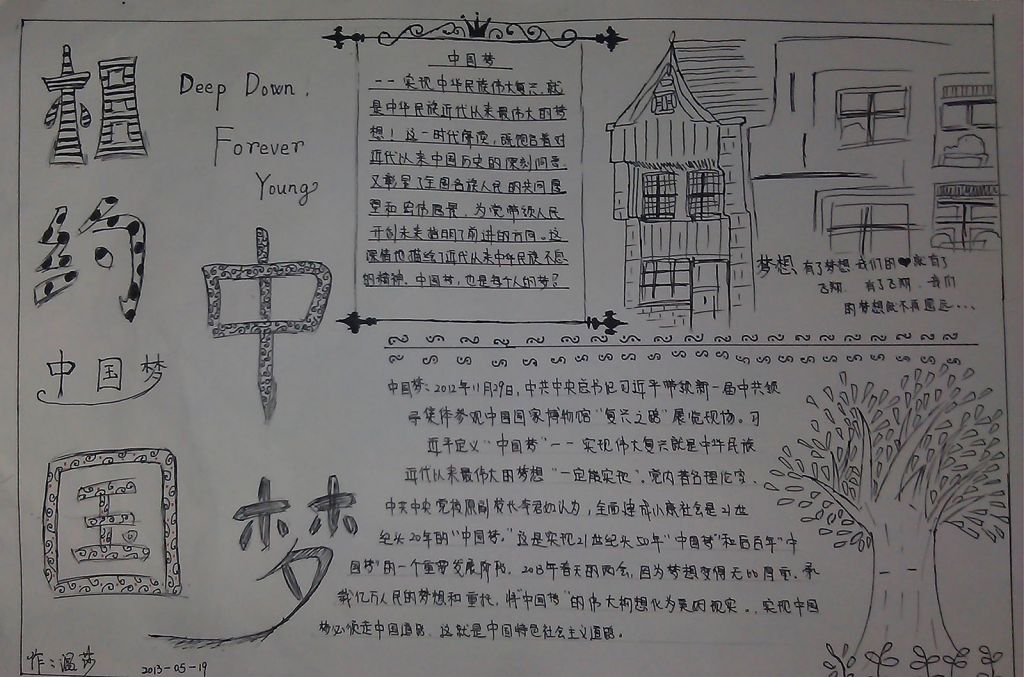 相约
中国梦
中
国
梦
Deep Down,
Forever
Young
中国梦
——实现中华民族伟大复兴,就
是中华民族近代以来最伟大的梦
想!这一时代解读,既饱含着对
近代以来中国历史的深刻洞悉,
又彰显了全国各族人民的共同愿
望和宏伟愿景,为党带领人民
开创未来指明了前进的方向。这
深情也描绘了近代以来中华民族不息
的精神。中国梦,也是每个人的梦?
梦想 有了梦想我们的❤就有了
飞翔 有了飞翔,我们
的梦想就不再遥远...
中国梦:2012年11月29日,中共中央总书记习近平带领新一届中共领
导集体参观中国国家博物馆“复兴之路”展览现场。习
近平定义“中国梦”——实现伟大复兴就是中华民族
近代以来最伟大的梦想“一定能实现”。党内著名理论家、
中共中央党校原副校长李君如认为,全面建成小康社会是21世
纪头20年的“中国梦,”这是实现21世纪头50年“中国梦”和后百年“中
国梦”的一个重要发展阶段。2013年春天的两会,因为梦想变得无比厚重,承
载亿万人民的梦想和重托,将“中国梦”的伟大构想化为美的现实。实现中国
梦必须走中国道路,这就是中国特色社会主义道路。
作:温莎
2013-05-19